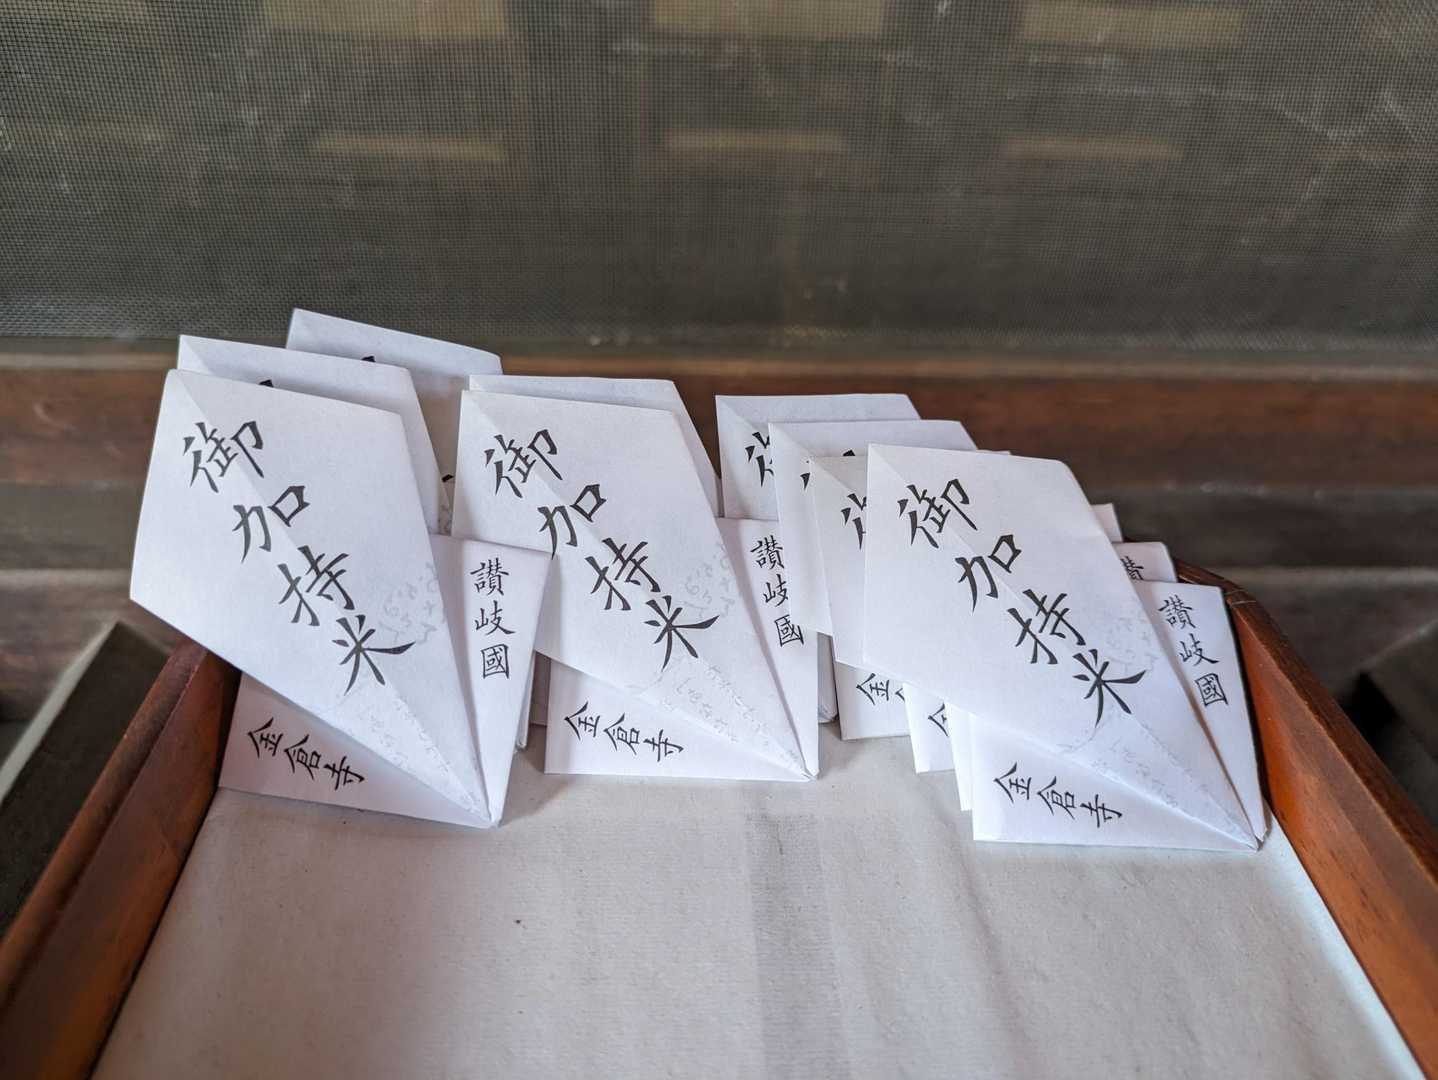 御加持米
讃岐國
金倉寺
御加持米
讃岐國
金倉寺
御
御
金
金
御加持米
讃
讃岐國
金倉寺